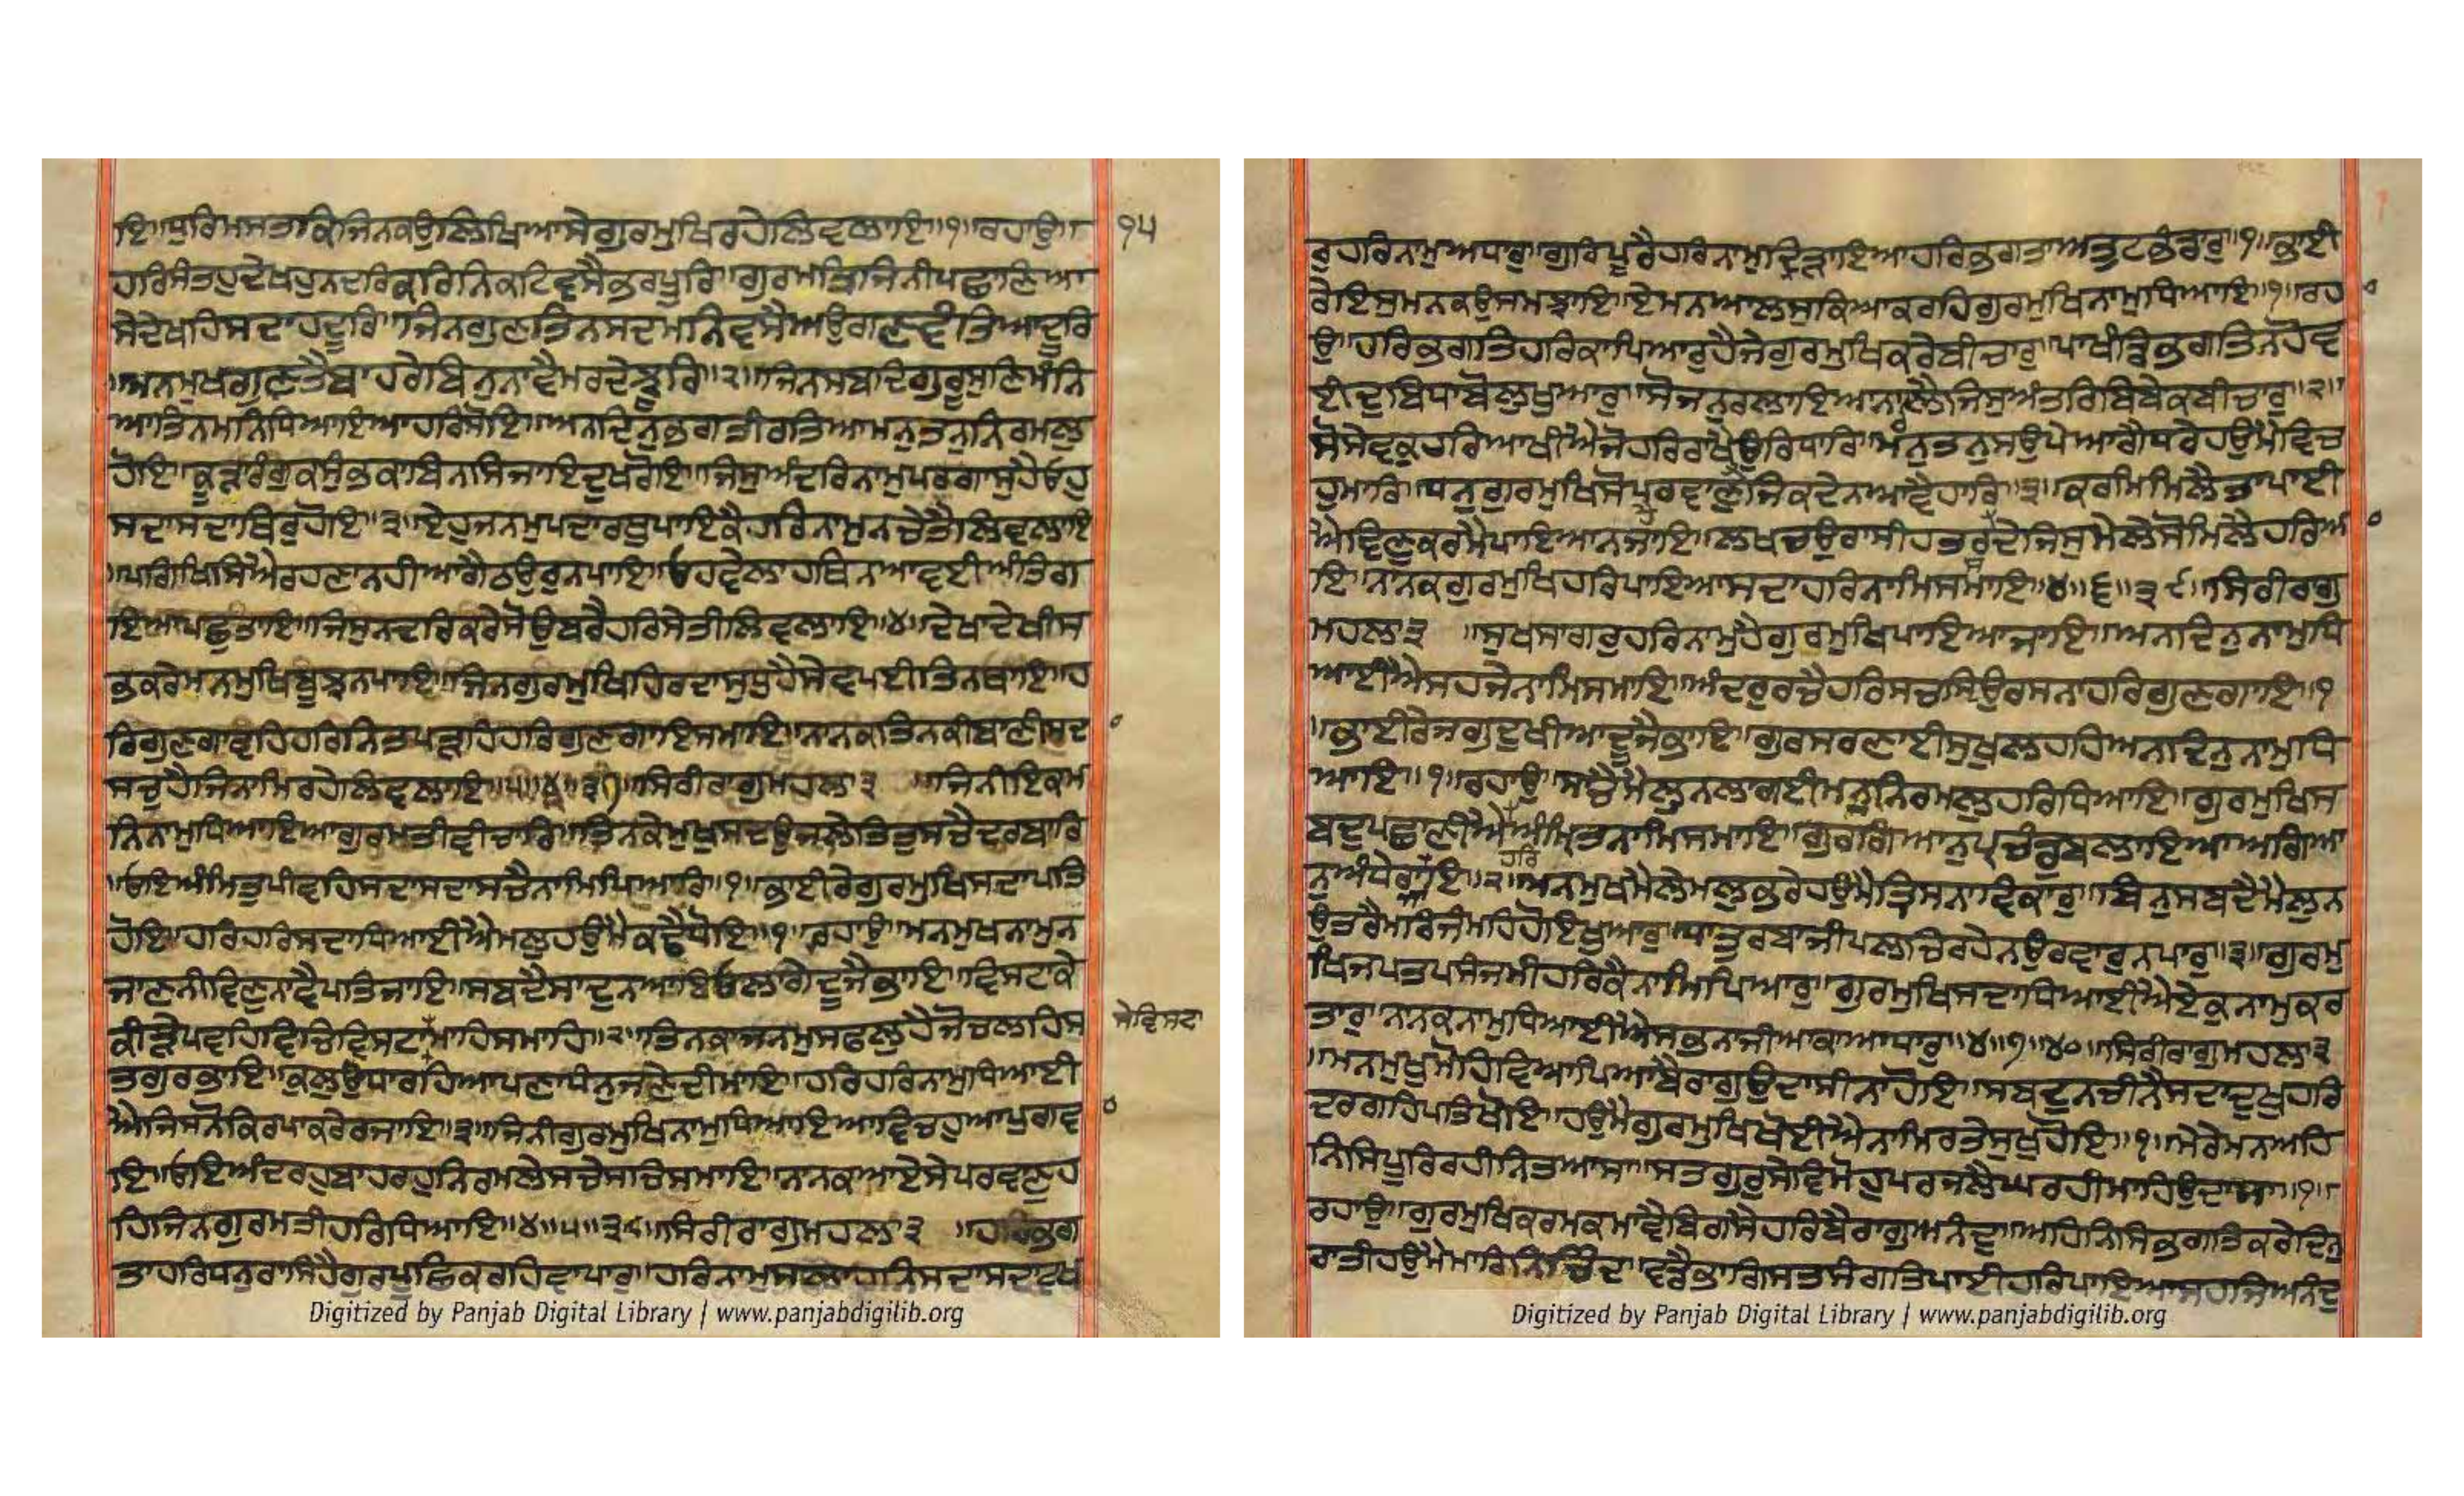 ਇ॥ਧੁਰਿਮਸਤਕਿਜਿਨਕਉਲਿਖਿਆਸੇਗੁਰਮੁਖਿਰਹੇਲਿਵਲਾਇ॥੧॥ਰਹਾਉ॥
੧੫
ਹਰਿਸੰਤਹੁਦੇਖਹੁਨਦਰਿਕਰਿਨਿਕਟਿਵਸੈਭਰਪੂਰਿ॥ਗੁਰਮਤਿਜਿਨੀਪਛਾਣਿਆ
ਸੇਦੇਖਹਿਸਦਾਹਦੂਰਿ॥ਜਿਨਗੁਣਤਿਨਸਦਮਨਿਵਸੈਅਉਗੁਣਵੰਤਿਆਦੂਰਿ
॥ਮਨਮੁਖਗੁਣਤੈਬਾਹਰੇਬਿਨੁਨਾਵੈਮਰਦੇਝੂਰਿ॥੨॥ਜਿਨਸਬਦਿਗੁਰੂਸੁਣਿਮੰਨਿ
ਆਤਿਨਮਨਿਧਿਆਇਆਹਰਿਸੋਇ॥ਅਨਦਿਨੁਭਗਤੀਰਤਿਆਮਨੁਤਨੁਨਿਰਮਲੁ
ਹੋਇ॥ਕੂੜਾਰੰਗੁਕਸੁੰਭਕਾਬਿਨਸਿਜਾਇਦੁਖੁਰੋਇ॥ਜਿਸੁਅੰਦਰਿਨਾਮੁਪਰਗਾਸੁਹੈਓਹੁ
ਸਦਾਸਦਾਥਿਰੁਹੋਇ॥੩॥ਏਹੁਜਨਮੁਪਦਾਰਥੁਪਾਇਕੈਹਰਿਨਾਮੁਨਚੇਤੈਲਿਵਲਾਇ
॥ਪਗਿਖਿਸਿਐਰਹਣਾਨਹੀਆਗੈਠਉਰੁਨਪਾਇ॥ਓਹਵੇਲਾਹਥਿਨਆਵਈਅੰਤਿਗ
ਇਆਪਛੁਤਾਇ॥ਜਿਸੁਨਦਰਿਕਰੇਸੋਉਬਰੈਹਰਿਸੇਤੀਲਿਵਲਾਇ॥੪॥ਦੇਖਾਦੇਖੀਸ
ਭਕਰੇਮਨਮੁਖਿਬੂਝਨਪਾਇ॥ਜਿਨਗੁਰਮੁਖਿਹਿਰਦਾਸੁਧੁਹੈਸੇਵਪਈਤਿਨਥਾਇ॥ਹ
ਰਿਗੁਣਗਾਵਹਿਹਰਿਨਿਤਪੜਹਿਹਰਿਗੁਣਗਾਇਸਮਾਇ॥ਨਾਨਕਤਿਨਕੀਬਾਣੀਸਦ
ਸਚੁਹੈਜਿਨਾਮਿਰਹੇਲਿਵਲਾਇ॥੫॥੪॥੩੭॥ਸਿਰੀਰਾਗੁਮਹਲਾ੩॥ਜਿਨੀਇਕਮ
ਨਿਨਾਮੁਧਿਆਇਆਗੁਰਮਤੀਵੀਚਾਰਿ॥ਤਿਨਕੇਮੁਖਸਦਉਜਲੇਤਿਤੁਸਚੈਦਰਬਾਰਿ
॥ਓਇਅੰਮਿਤੁਪੀਵਹਿਸਦਾਸਦਾਸਚੈਨਾਮਿਪਿਆਰਿ॥੧॥ਭਾਈਰੇਗੁਰਮੁਖਿਸਦਾਪਤਿ
ਹੋਇ॥ਹਰਿਹਰਿਸਦਾਧਿਆਈਐਮਲੁਹਉਮੈਕਢੈਧੋਇ॥੧॥ਰਹਾਉ॥ਮਨਮੁਖਨਾਮੁਨ
ਜਾਣਨੀਵਿਣੁਨਾਵੈਪਤਿਜਾਇ॥ਸਬਦੈਸਾਦੁਨਆਇਓਲਾਗੇਦੂਜੈਭਾਇ॥ਵਿਸਟਾਕੇ
ਕੀੜੇਪਵਹਿਵਿਚਿਵਿਸਟਾਮਾਹਿਸਮਾਹਿ॥੨॥ਤਿਨਕਾਜਨਮੁਸਫਲੁਹੈਜੋਚਲਹਿਸ
ਸੇਵਿਸਟਾ
ਤਗੁਰਭਾਇ॥ਕੁਲੁਉਧਾਰਹਿਆਪਣਾਧੰਨੁਜਣੇਦੀਮਾਇ॥ਹਰਿਹਰਿਨਾਮੁਧਿਆਈ
ਐਜਿਸਨੋਕਿਰਪਾਕਰੇਰਜਾਇ॥੩॥ਜਿਨੀਗੁਰਮੁਖਿਨਾਮੁਧਿਆਇਆਵਿਚਹੁਆਪੁਗਵ
ਇ॥ਓਇਅੰਦਰਹੁਬਾਹਰਹੁਨਿਰਮਲੇਸਚੇਸਚਿਸਮਾਇ॥ਨਾਨਕਆਏਸੇਪਰਵਾਣੁਹ
ਹਿਜਿਨਗੁਰਮਤੀਹਰਿਧਿਆਇ॥੪॥੫॥੩੮॥ਸਿਰੀਰਾਗੁਮਹਲਾ੩॥ਹਰਿਭਗ
ਤਾਹਰਿਧਨੁਰਾਸਿਹੈਗੁਰਪੂਛਿਕਰਹਿਵਾਪਾਰੁ॥ਹਰਿਨਾਮੁਸਲਾਹਨਿਸਦਾਸਦਾਵਖ
Digitized by Panjab Digital Library | www.panjabdigilib.org
ਰੁਹਰਿਨਾਮੁਅਧਾਰੁ॥ਗੁਰਿਪੂਰੈਹਰਿਨਾਮੁਦ੍ਰਿੜਾਇਆਹਰਿਭਗਤਾਅਤੁਟਭੰਡਾਰੁ॥੧॥ਭਾਈ
ਰੇਇਸੁਮਨਕਉਸਮਝਾਇ॥ਏਮਨਆਲਸੁਕਿਆਕਰਹਿਗੁਰਮੁਖਿਨਾਮੁਧਿਆਇ॥੧॥ਰਹ
ਉ॥ਹਰਿਭਗਤਿਹਰਿਕਾਪਿਆਰੁਹੈਜੇਗੁਰਮੁਖਿਕਰੇਬੀਚਾਰੁ॥ਪਾਖੰਡਿਭਗਤਿਨਹੋਵ
ਈਦੁਬਿਧਾਬੋਲੁਖੁਆਰੁ॥ਸੋਜਨੁਰਲਾਇਆਨਾਰਲੈਜਿਸੁਅੰਤਰਿਬਿਬੇਕਬੀਚਾਰੁ॥੨॥
ਸੋਸੇਵਕੁਹਰਿਆਖੀਐਜੋਹਰਿਰਾਖੈਉਰਿਧਾਰਿ॥ਮਨੁਤਨੁਸਉਪੇਆਗੈਧਰੇਹਉਮੈਵਿਚ
ਹੁਮਾਰਿ॥ਧਨੁਗੁਰਮੁਖਿਸੋਪਰਵਾਣੁਹੈਜਿਕਦੇਨਆਵੈਹਾਰਿ॥੩॥ਕਰਮਿਮਿਲੈਤਾਪਾਈ
ਐਵਿਣੁਕਰਮੈਪਾਇਆਨਜਾਇ॥ਲਖਚਉਰਾਸੀਹਤਰਸਦੇਜਿਸੁਮੇਲੇਸੋਮਿਲੈਹਰਿਆ
ਇ॥ਨਾਨਕਗੁਰਮੁਖਿਹਰਿਪਾਇਆਸਦਾਹਰਿਨਾਮਿਸਮਾਇ॥੪॥੬॥੩੯॥ਸਿਰੀਰਾਗੁ
ਮਹਲਾ੩॥ਸੁਖਸਾਗਰੁਹਰਿਨਾਮੁਹੈਗੁਰਮੁਖਿਪਾਇਆਜਾਇ॥ਅਨਦਿਨੁਨਾਮੁਧਿ
ਆਈਐਸਹਜੇਨਾਮਿਸਮਾਇ॥ਅੰਦਰੁਰਚੈਹਰਿਸਚਸਿਉਰਸਨਾਹਰਿਗੁਣਗਾਇ॥੧
॥ਭਾਈਰੇਜਗੁਦੁਖੀਆਦੂਜੈਭਾਇ॥ਗੁਰਸਰਣਾਈਸੁਖੁਲਹਹਿਅਨਦਿਨੁਨਾਮੁਧਿ
ਆਇ॥੧॥ਰਹਾਉ॥ਸਾਚੈਮੈਲੁਨਲਾਗਈਮਨੁਨਿਰਮਲੁਹਰਿਧਿਆਇ॥ਗੁਰਮੁਖਿਸ
ਬਦੁਪਛਾਣੀਐਅੰਮ੍ਰਿਤਨਾਮਿਸਮਾਇ॥ਗੁਰਗਿਆਨੁਪ੍ਰਚੰਡੁਬਲਾਇਆਅਗਿਆ
ਹਰਿ
ਨੁਅੰਧੇਰਾਜਾਇ॥੨॥ਮਨਮੁਖਮੈਲੇਮਲੁਭਰੇਹਉਮੈਤ੍ਰਿਸਨਾਵਿਕਾਰੁ॥ਬਿਨੁਸਬਦੈਮੈਲੁਨ
ਉਤਰੈਮਰਿਜੰਮਹਿਹੋਇਖੁਆਰੁ॥ਧਾਤੁਰਬਾਜੀਪਲਚਿਰਹੇਨਉਰਵਾਰੁਨਪਾਰੁ॥੩॥ਗੁਰਮੁ
ਖਿਜਪਤਪਸੰਜਮੀਹਰਿਕੈਨਾਮਿਪਿਆਰੁ॥ਗੁਰਮੁਖਿਸਦਾਧਿਆਈਐਏਕੁਨਾਮੁਕਰ
ਤਾਰੁ॥ਨਾਨਕਨਾਮੁਧਿਆਈਐਸਭਨਾਜੀਆਕਾਆਧਾਰੁ॥੪॥੭॥੪੦॥ਸਿਰੀਰਾਗੁਮਹਲਾ੩
॥ਮਨਮੁਖੁਮੋਹਿਵਿਆਪਿਆਬੈਰਾਗੁਉਦਾਸੀਨਾਹੋਇ॥ਸਬਦੁਨਚੀਨੈਸਦਾਦੁਖੁਹਰਿ
ਦਰਗਹਿਪਤਿਖੋਇ॥ਹਉਮੈਗੁਰਮੁਖਿਖੋਈਐਨਾਮਿਰਤੇਸੁਖੁਹੋਇ॥੧॥ਮੇਰੇਮਨਅਹਿ
ਨਿਸਿਪੂਰਿਰਹੀਨਿਤਆਸਾ॥ਸਤਗੁਰੁਸੇਵਿਮੋਹੁਪਰਜਲੈਘਰਹੀਮਾਹਿਉਦਾਸਾ॥੧॥
ਰਹਾਉ॥ਗੁਰਮੁਖਿਕਰਮਕਮਾਵੈਬਿਗਸੈਹਰਿਬੈਰਾਗੁਅਨੰਦੁ॥ਅਹਿਨਿਸਿਭਗਤਿਕਰੇਦਿਨੁ
ਰਾਤੀਹਉਮੈਮਾਰਿਨਿਚੰਦੁ॥ਵਡੈਭਾਗਿਸਤਸੰਗਤਿਪਾਈਹਰਿਪਾਇਆਸਹਜਿਅਨੰਦੁ
Digitized by Panjab Digital Library | www.panjabdigilib.org